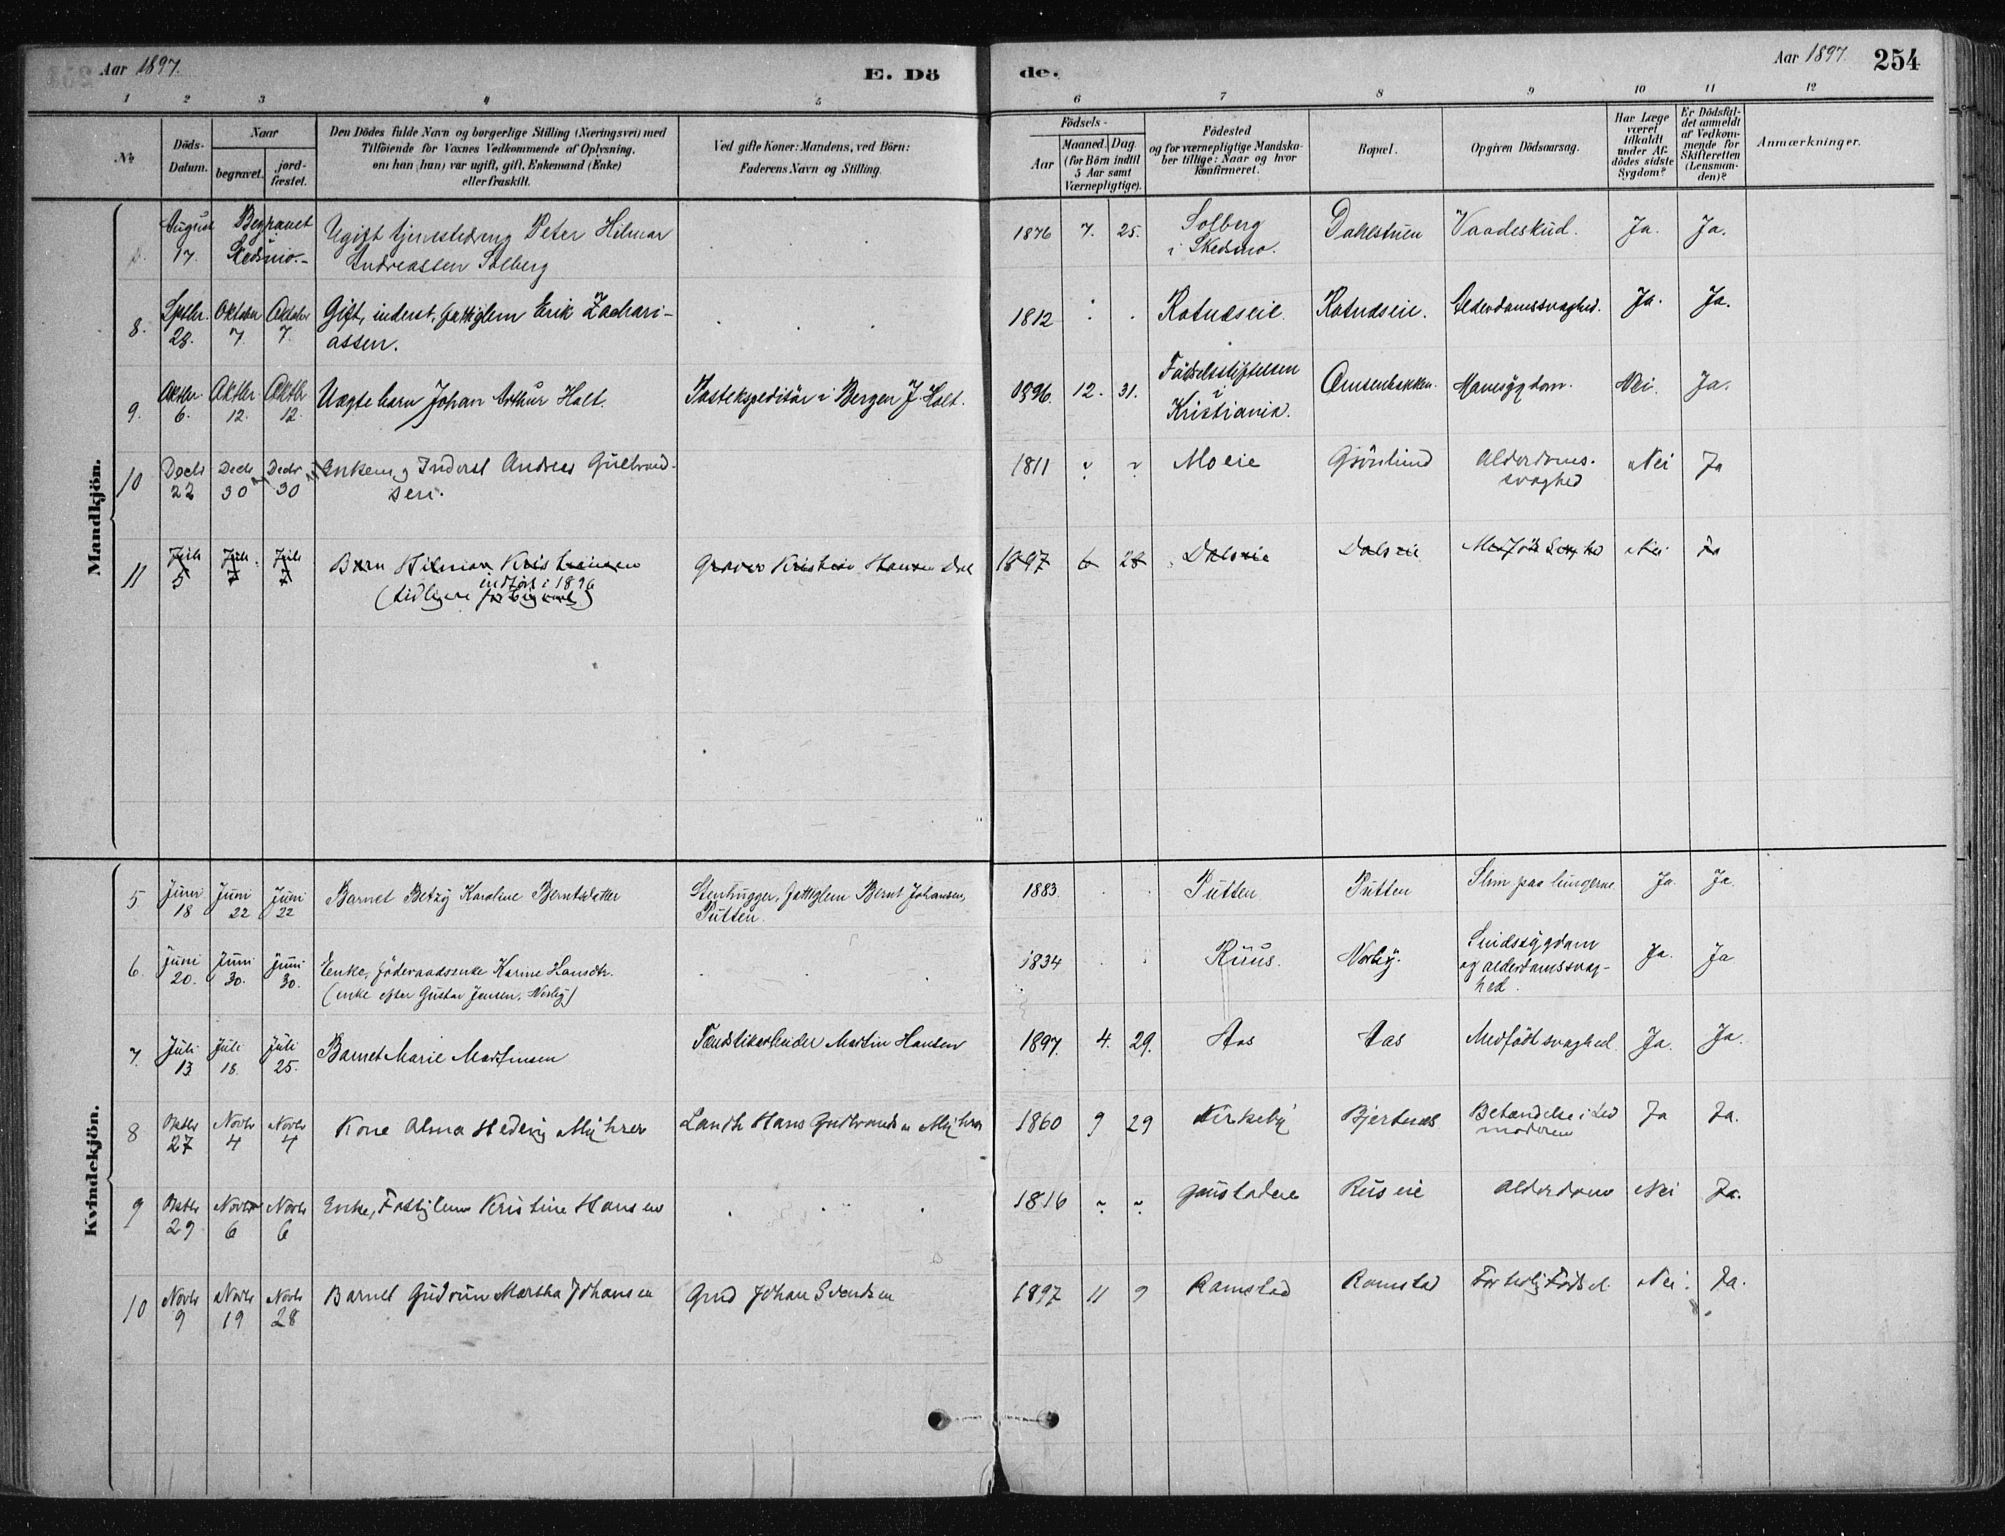 Aar 1897. E. Dö de. Aar 1897. 254
1 2 3 4 5 6 7 8 9 10 11 12
No.
Döds-Datum.
Naar
begravet.
jord-fæstet.
Den Dödes fulde Navn og borgerlige Stilling (Næringsvei) med
Tilföiende for Voxnes Vedkommende af Oplysning,
om han (hun) var ugift, gift, Enkemand (Enke)
eller fraskilt.
Ved gifte Koner: Mandens, ved Börn:
Faderens Navn og Stilling.
Födsels-
Aar
Maaned. Dag.
(for Börn indtil
5 Aar samt
Værnepligtige).
Födested
og for værnepligtige Mandska-
ber tillige: Naar og hvor
konfirmeret.
Bopæl.
Opgiven Dödsaarsag.
Har Læge
været
tilkaldt
under Af-
dödes sidste
Sygdom?
Er Dödsfal-
det anmeldt
af Vedkom-
mende for
Skifteretten
(Lensman-
den)?
Anmærkninger.
Mandkjön.
August 17. Begravet Skedsmo.- Ugift tjenestedreng Peter Hilmar
Andreassen Solberg
1876 7. 25. Solberg i Skedsmo. Dahlstuen Vaadeskud. Ja. Ja.
8. Septbr. 28. Oktober 7. Oktober 7. Gift, inderst, fattiglem Erik Zachari-
assen.
1812 Ratudseie. Ratudseie. Alderdomssvaghed. Ja. Ja.
9. Oktbr. 6. Oktbr 12. Oktbr 12. Uægte barn Johan Arthur Holt. Postekspeditör i Bergen J. Holt. 1896. 12. 31. Födselsstiftelsen i Kristiania. Mavesygdom. Nei. Ja.
10 Decbr 22 Decbr 30 Decbr 30 Enkem. Inderst Andreas Gulbrand-
sen.
1811 " " Moeie Grönlund Alderdoms-
svaghed Nei Ja
11 Juli 5 Juli 7 Juli 7 Barn Hilmar Kristiansen
indfört i 1896
(tidligere forbigaaet)
Graver Kristian Hansen Dal 1897 6 28 Dalseie Dalseie Medfödt Svaghed Nei Ja
Kvindekjön.
5. Juni 18 Juni 22 Juni 22 Barnet Betzy Karoline Berntsdatter Stenhugger, fattiglem Bernt Johansen,
Putten.
1883. Putten Putten Slim paa lungerne Ja. Ja.
6. Juni 20. Juni 30. Juni 30. Enke, föderaadsenke Karine Hansdtr.
(enke efter Gustav Jensen, Norby)
1834 Ruus. Norby. Sindssygdom
og alderdomssvag-
hed. Ja. Ja
7. Juli 13. Juli 18. Juli 25. Barnet Marie Martinsen Fændstikarbeider Martin Hansen 1897. 4. 29. Aas Aas Medfödt svaghed. Ja. Ja.
8 Oktbr 27 Novbr 4 Novbr 4 Kone Alma Hedvig Myhrer Landh. Hans Gudbrandsen Myhrer 1860 9 29 Kirkeby Bjertnes Betændelse i Liv
moderen Ja Ja.
9 Oktbr 29 Novbr 6 Novbr 6 Enke, Fattiglem Kristine Hansen 1816 " " Ruseie Alderdom Nei Ja.
10 Novbr 9 Novbr 19 Novbr 28 Barnet Gudrun Martha Johansen Grd Johan Svendsen 1897 11 9 Ramstad Ramstad For tidlig Födsel Nei. Ja.